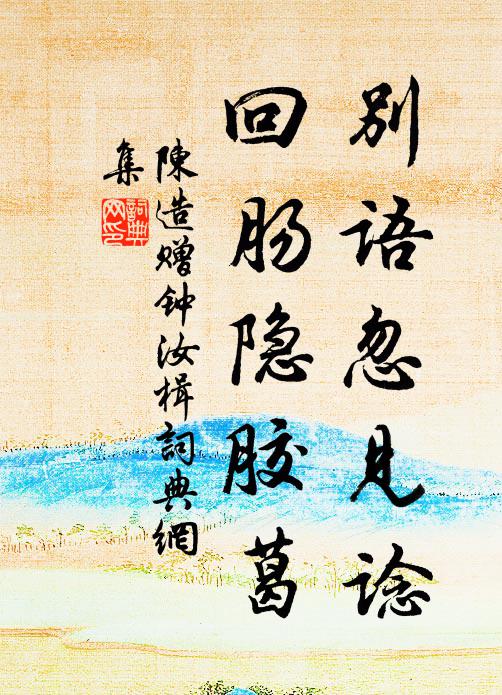 别语忽见谂
回肠隐胶葛
陳造赠钟汝楫詞典網
集
詞典网印